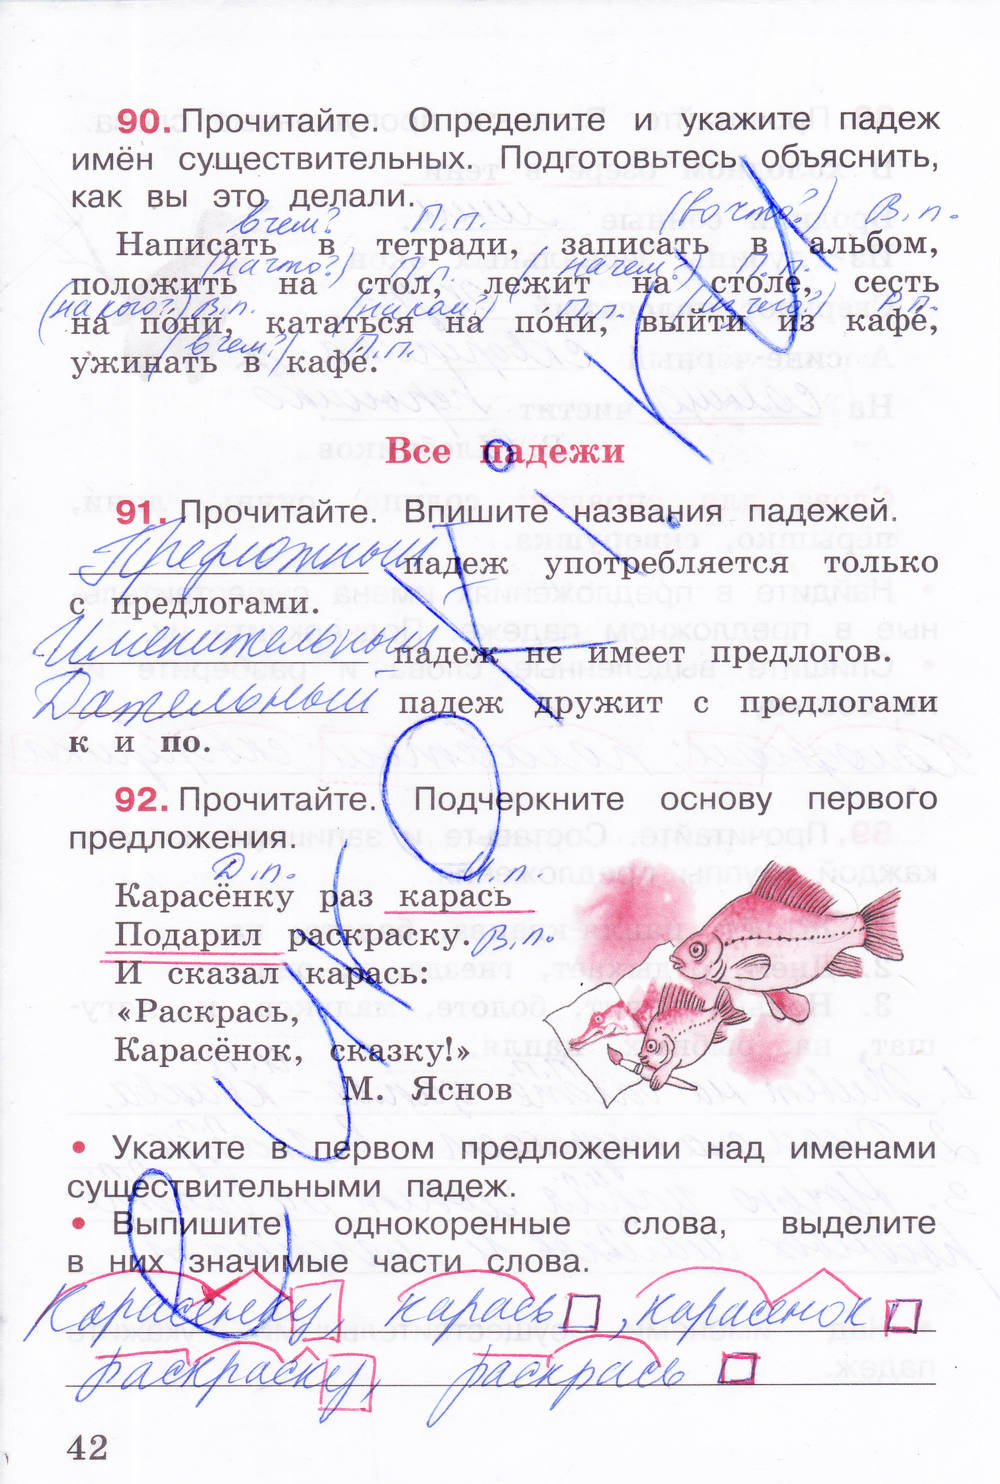 90. Прочитайте. Определите и укажите падеж
имён существительных. Подготовьтесь объяснить,
как вы это делали.
в чём? П.п. (во что?) В.п.
Написать в тетради, записать в альбом,
(на что?) В.п. (на чём?) П.п.
положить на стол, лежит на столе, сесть
(на кого?) В.п. (на ком?) П.п. (из чего?) Р.п.
на пони, кататься на пони, выйти из кафе,
(в чём?) П.п.
ужинать в кафе.
Все падежи
91. Прочитайте. Впишите названия падежей.
Предложный падеж употребляется только
с предлогами.
Именительный падеж не имеет предлогов.
Дательный падеж дружит с предлогами
к и по.
92. Прочитайте. Подчеркните основу первого
предложения.
Д.п. И.п.
Карасёнку раз карась
Подарил раскраску. В.п.
И сказал карась:
«Раскрась,
Карасёнок, сказку!»
М. Яснов
• Укажите в первом предложении над именами
существительными падеж.
• Выпишите однокоренные слова, выделите
в них значимые части слова.
Карасёнку, карась, карасёнок
раскраску, раскрась
42